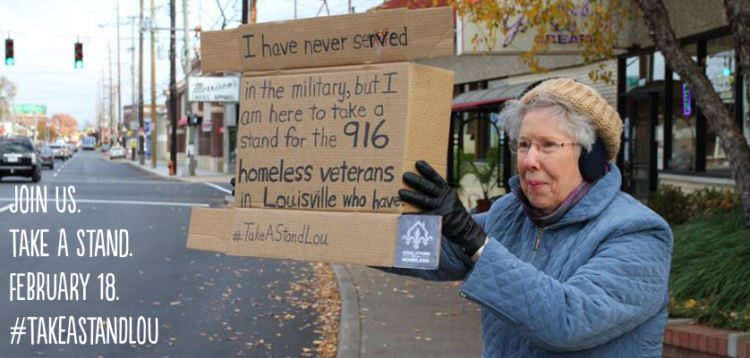 I have never served
in the military, but I
am here to take a
stand for the 916
homeless veterans
in Louisville who have.
#TakeAStandLou
COALITION
HOMELESS
Morrison's
JOIN US.
TAKE A STAND.
FEBRUARY 18.
#TAKEASTANDLOU